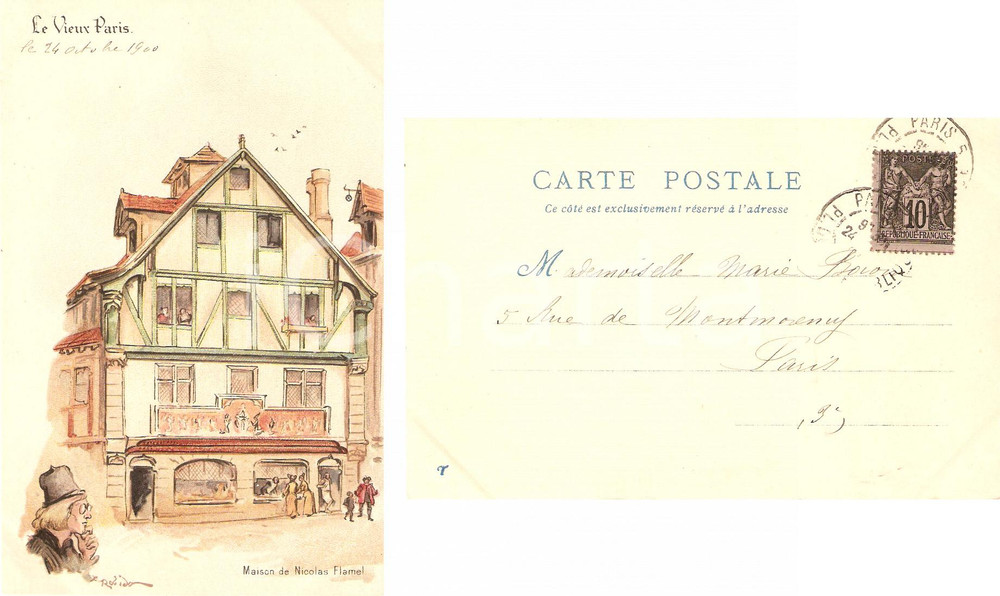 Le Vieux Paris.
le 24 octobre 1900
Robida
Maison de Nicolas Flamel
CARTE POSTALE
Ce côté est exclusivement réservé à l'adresse
PARIS
POSTE
10
REPUBLIQUE FRANCAISE
PARIS
24
Mademoiselle Marie
5 Rue de Montmorency
Paris
(3e)